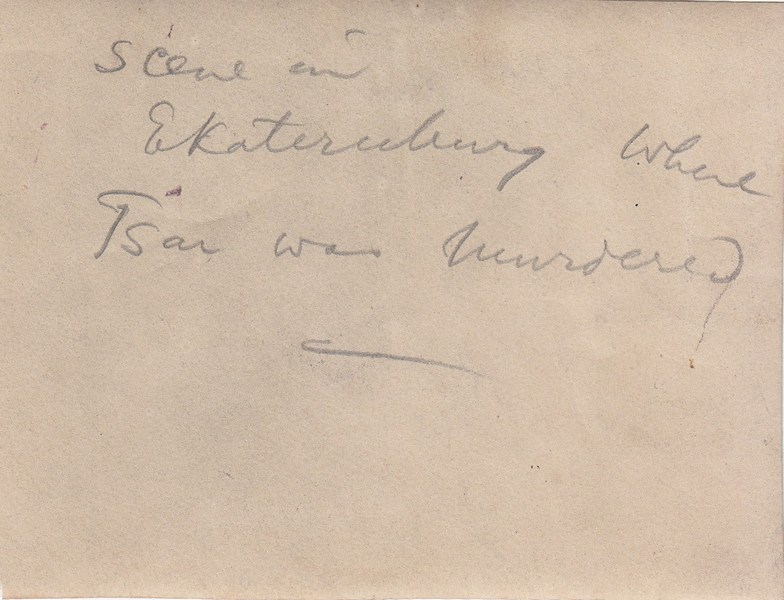 Scene in
Ekaterinburg where
Tsar was murdered